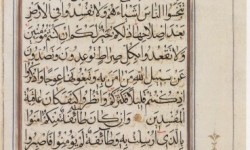 تَبْخَسُوا النَّاسَ أَشْيَاءَهُمْ وَلَا تُفْسِدُوا فِي الْأَرْضِ
بَعْدَ إِصْلَاحِهَا ذَلِكُمْ خَيْرٌ لَكُمْ إِنْ كُنْتُمْ مُؤْمِنِينَ
وَلَا تَقْعُدُوا بِكُلِّ صِرَاطٍ تُوعِدُونَ وَتَصُدُّونَ
عَنْ سَبِيلِ اللَّهِ مَنْ آمَنَ بِهِ وَتَبْغُونَهَا عِوَجًا وَاذْكُرُوا
إِذْ كُنْتُمْ قَلِيلًا فَكَثَّرَكُمْ وَانْظُرُوا كَيْفَ كَانَ عَاقِبَةُ
الْمُفْسِدِينَ وَإِنْ كَانَ طَائِفَةٌ مِنْكُمْ آمَنُوا
بِالَّذِي أُرْسِلْتُ بِهِ وَطَائِفَةٌ لَمْ يُؤْمِنُوا فَاصْبِرُوا